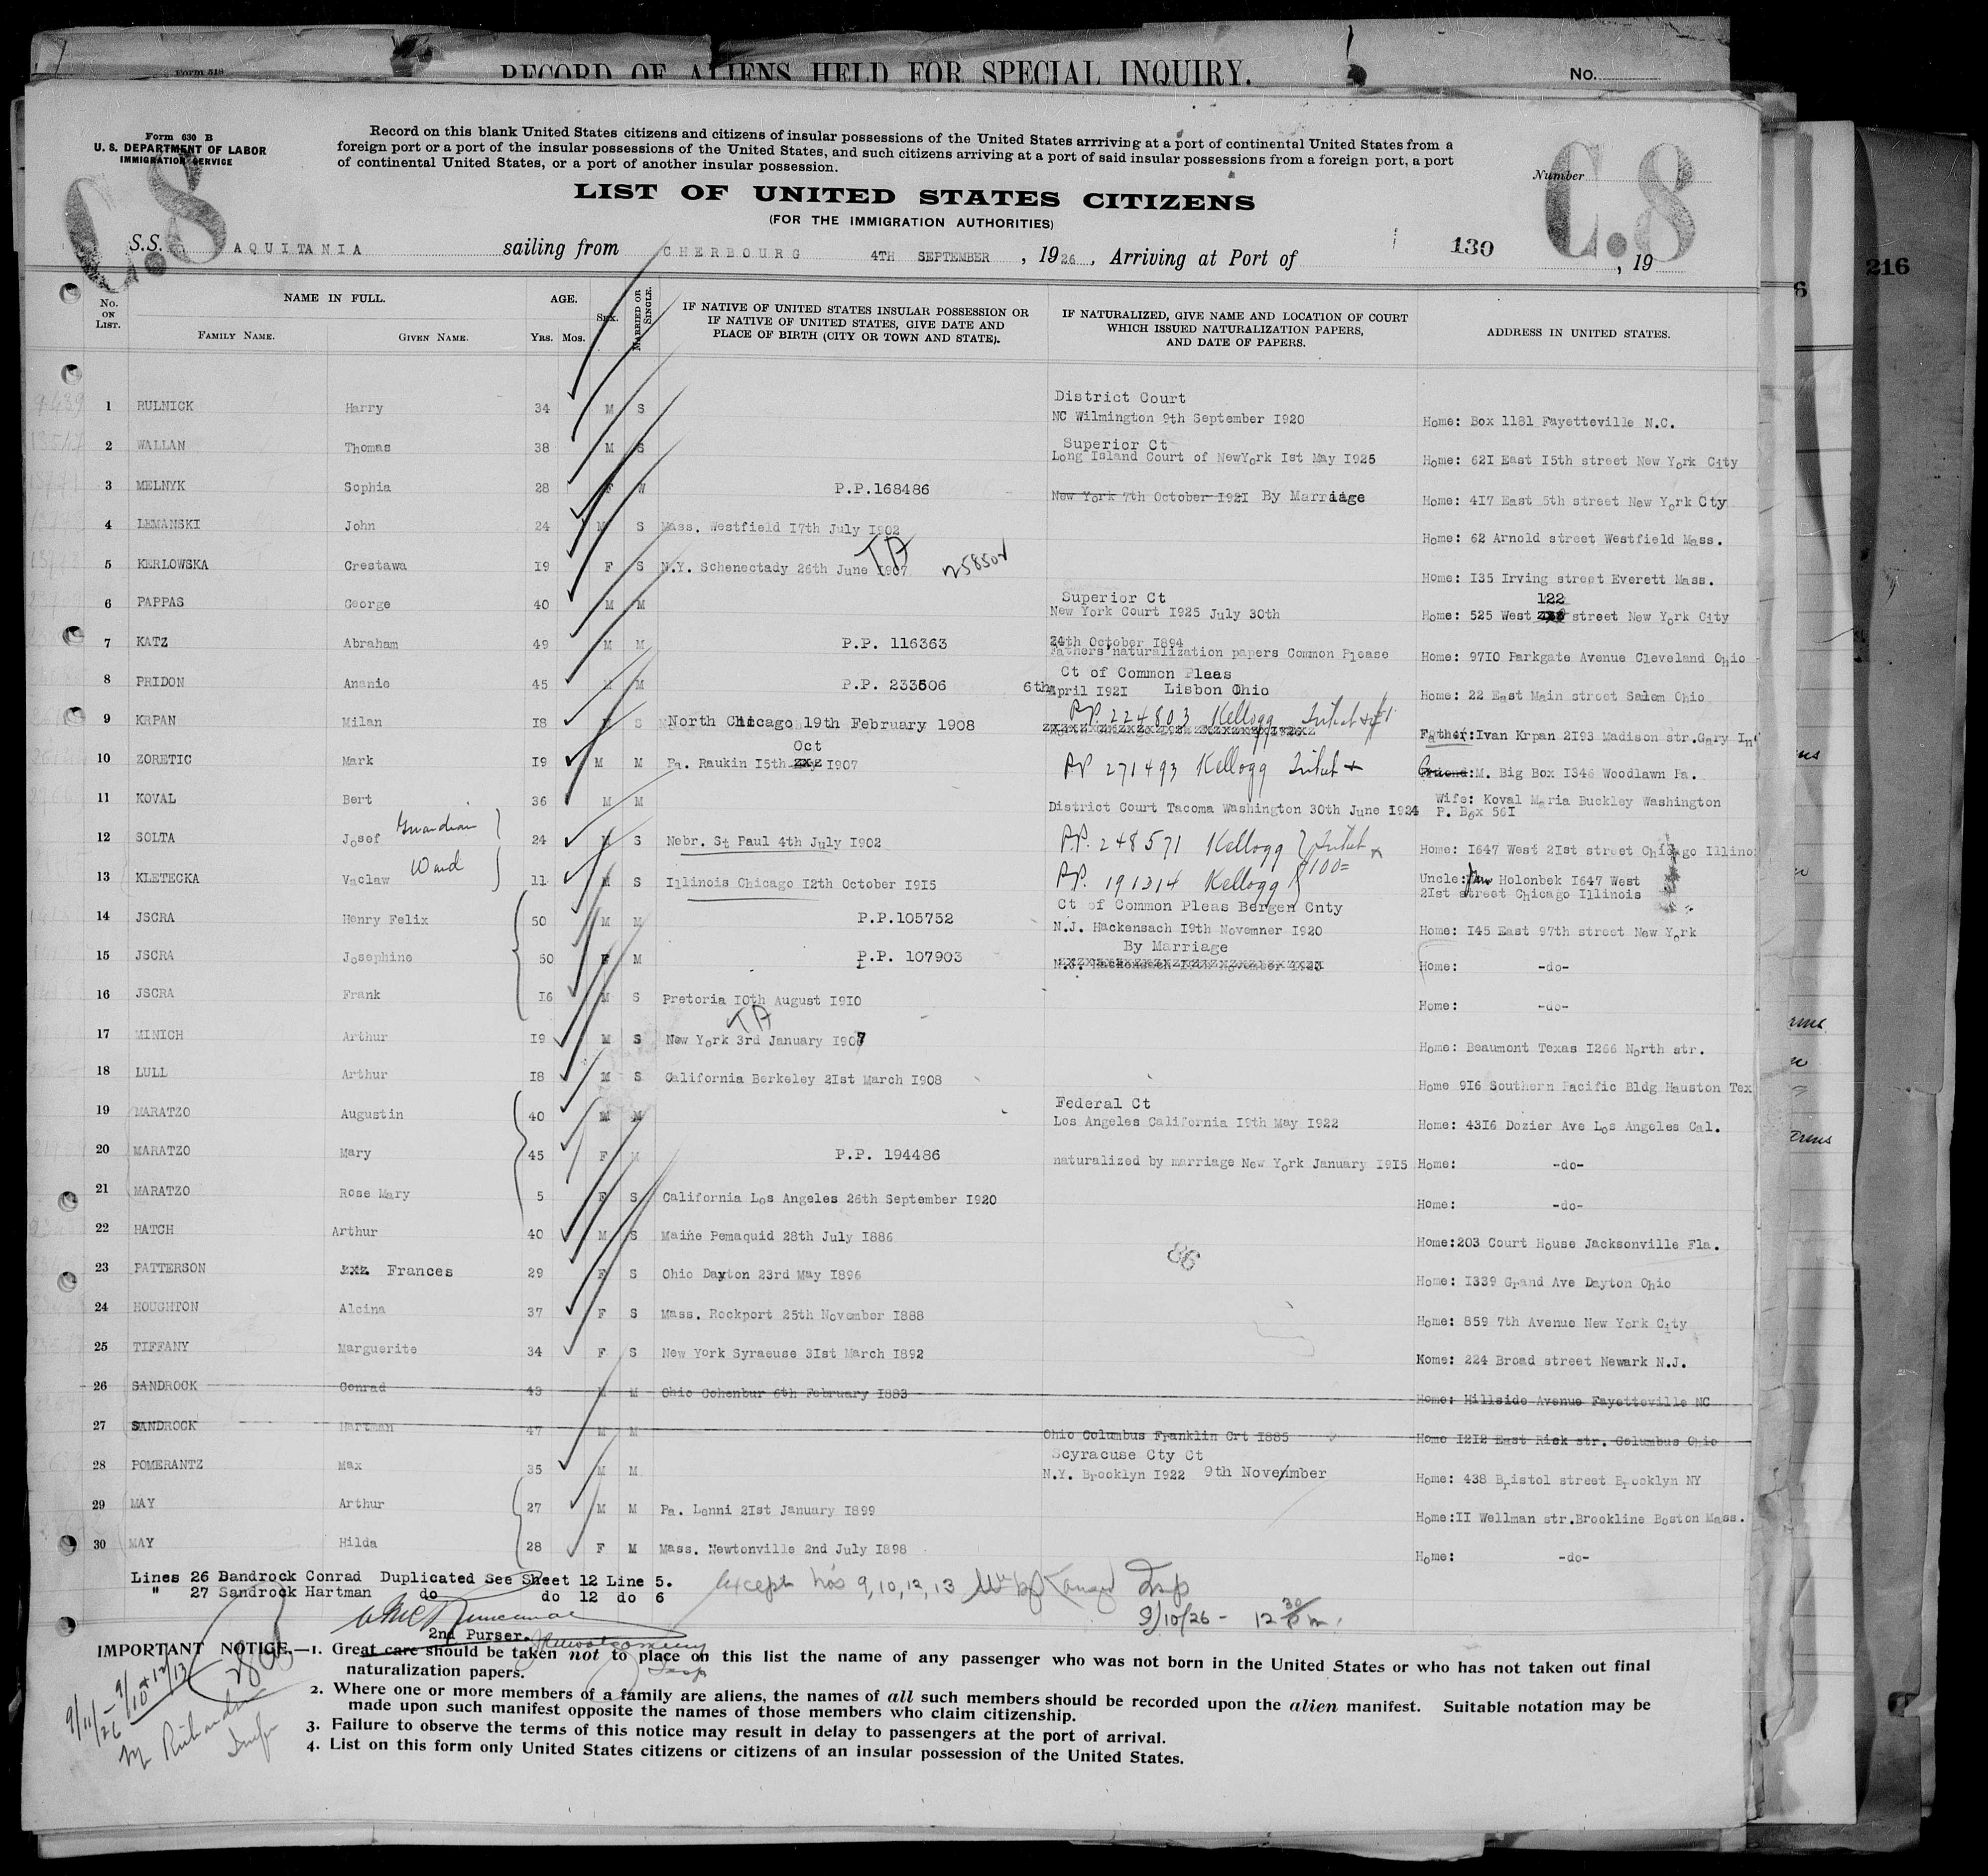 Form 518
RECORD OF ALIENS HELD FOR SPECIAL INQUIRY.
No.
Form 630 B
U. S. DEPARTMENT OF LABOR
IMMIGRATION SERVICE
C.8
Record on this blank United States citizens and citizens of insular possessions of the United States arrriving at a port of continental United States from a
foreign port or a port of the insular possessions of the United States, and such citizens arriving at a port of said insular possessions from a foreign port, a port
of continental United States, or a port of another insular possession.
Number
C.8
LIST OF UNITED STATES CITIZENS
(FOR THE IMMIGRATION AUTHORITIES)
S.S. AQUITANIA sailing from CHERBOURG 4TH SEPTEMBER , 1926 , Arriving at Port of 130 , 19
216
6
No. ON LIST.
NAME IN FULL.
FAMILY NAME. GIVEN NAME.
AGE.
YRS. MOS.
SEX.
MARRIED OR SINGLE.
IF NATIVE OF UNITED STATES INSULAR POSSESSION OR
IF NATIVE OF UNITED STATES, GIVE DATE AND
PLACE OF BIRTH (CITY OR TOWN AND STATE).
IF NATURALIZED, GIVE NAME AND LOCATION OF COURT
WHICH ISSUED NATURALIZATION PAPERS,
AND DATE OF PAPERS.
ADDRESS IN UNITED STATES.
District Court
1 RULNICK Harry 34 M S NC Wilmington 9th September I920 Home: Box 1181 Fayetteville N.C.
Superior Ct
2 WALLAN Thomas 38 M S Long Island Court of NewYork Ist May I925 Home: 62I East I5th street New York City
3 MELNYK Sophia 28 F W P.P.168486 New York 7th October I92I By Marriage Home: 4I7 East 6th street New York Cty
4 LEMANSKI John 24 M S Mass. Westfield I7th July I902 Home: 62 Arnold street Westfield Mass.
TA
5 KERLOWSKA Crestawa I9 F S N.Y. Schenectady 26th June I907 Home: I35 Irving street Everett Mass.
Superior Ct 122
6 PAPPAS George 40 M M New York Court I925 July 30th Home: 525 West street New York City
24th October I894
7 KATZ Abraham 49 M M P.P. 116363 Fathers naturalization papers Common Please Home: 97I0 Parkgate Avenue Cleveland Ohio
Ct of Common Pleas
8 PRIDON Ananie 45 M M P.P. 233606 6th April I92I Lisbon Ohio Home: 22 East Main street Salem Ohio
PP. 224803 Kellogg
9 KRPAN Milan I8 M S North Chicago 19th February 1908 Father:Ivan Krpan 2I93 Madison str.Gary In
Oct
10 ZORETIC Mark I9 M M Pa. Raukin I5th I907 PP 271493 Kellogg :M. Big Box I346 Woodlawn Pa.
11 KOVAL Bert 36 M M District Court Tacoma Washington 30th June I924 Wife: Koval Maria Buckley Washington
P. Box 56I
12 SOLTA Josef Guardian 24 M S Nebr. St Paul 4th July I902 PP. 248571 Kellogg Home: I647 West 2Ist street Chicago Illinoi
13 KLETECKA Vaclaw Ward 11 M S Illinois Chicago I2th October I9I5 PP. 191314 Kellogg 100= Uncle: Holonbek I647 West
2Ist street Chicago Illinois
Ct of Common Pleas Bergen Cnty
14 JSCRA Henry Felix 50 M M P.P.105752 N.J. Hackensach I9th Novemner I920 Home: I45 East 97th street New York
By Marriage
15 JSCRA Josephine 50 F M P.P. 107903 Home: -do-
16 JSCRA Frank I6 M S Pretoria I0th August I9I0 Home: -do-
TA
17 MINICH Arthur I9 M S New York 3rd January I907 Home: Beaumont Texas I266 North str.
18 LULL Arthur I8 M S California Berkeley 2Ist March I908 Home 9I6 Southern Pacific Bldg Hauston Tex
Federal Ct
19 MARATZO Augustin 40 M M Los Angeles California I9th May I922 Home: 43I6 Dozier Ave Los Angeles Cal.
20 MARATZO Mary 45 F M P.P. 194486 naturalized by marriage New York January I9I5 Home: -do-
21 MARATZO Rose Mary 5 F S California Los Angeles 26th September I920 Home: -do-
22 HATCH Arthur 40 M S Maine Pemaquid 28th July I886 Home:203 Court House Jacksonville Fla.
86
23 PATTERSON Frances 29 F S Ohio Dayton 23rd May I896 Home: I339 Grand Ave Dayton Ohio
24 HOUGHTON Alcina 37 F S Mass. Rockport 25th November I888 Home: 859 7th Avenue New York City
25 TIFFANY Marguerite 34 F S New York Syraeuse 3Ist March I892 Kome: 224 Broad street Newark N.J.
26 SANDROCK Conrad 43 M M Ohio Cohenbur 6th February I883 Home: Hillside Avenue Fayetteville NC
27 SANDROCK Hartman 47 M M Ohio Columbus Franklin Crt I885 Home I2I2 East Risk str. Columbus Ohio
Scyracuse Cty Ct
28 POMERANTZ Max 35 M M N.Y. Brooklyn I922 9th November Home: 438 Bristol street Brooklyn NY
29 MAY Arthur 27 M M Pa. Lenni 2Ist January I899 Home:II Wellman str.Brookline Boston Mass.
30 MAY Hilda 28 F M Mass. Newtonville 2nd July I898 Home: -do-
Lines 26 Bandrock Conrad Duplicated See Sheet 12 Line 5.
" 27 Sandrock Hartman do do 12 do 6
except No's 9, 10, 12, 13
Insp
9/10/26 - 12 30 Pm.
2nd Purser.
IMPORTANT NOTICE.—1. Great care should be taken not to place on this list the name of any passenger who was not born in the United States or who has not taken out final
naturalization papers.
2. Where one or more members of a family are aliens, the names of all such members should be recorded upon the alien manifest. Suitable notation may be
made upon such manifest opposite the names of those members who claim citizenship.
3. Failure to observe the terms of this notice may result in delay to passengers at the port of arrival.
4. List on this form only United States citizens or citizens of an insular possession of the United States.
9/11/26